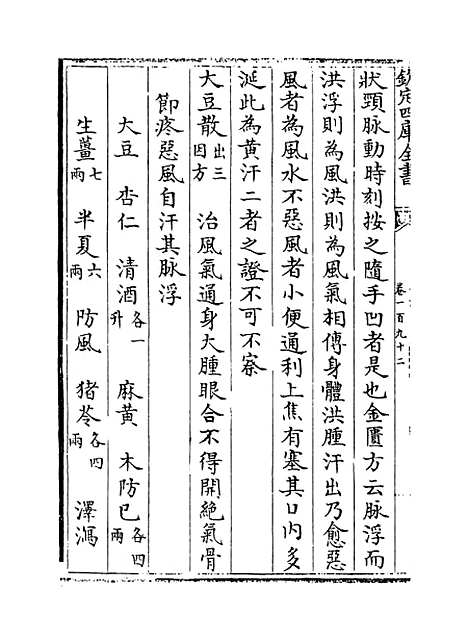 欽定四庫全書
卷一百九十二
狀頸脉動時刻按之隨手凹者是也金匱方云脉浮而
洪浮則為風洪則為風氣相傳身體洪腫汗出乃愈惡
風者為風水不惡風者小便通利上焦有塞其口内多
涎此為黄汗二者之證不可不察
大豆散出三因方 治風氣通身大腫眼合不得開絶氣骨
節疼惡風自汗其脉浮
大豆 杏仁 清酒各一升 麻黄 木防已各四兩
生薑七兩 半夏六兩 防風 猪苓各四兩 澤瀉